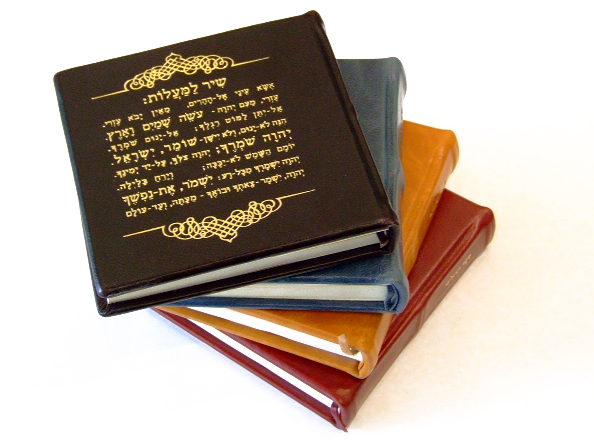 שיר למעלות:
אשא עיני אל-ההרים, מאין יבא עזרי.
עזרי, מעם יהוה - עשה שמים וארץ.
אל-יתן למוט רגלך; אל-ינום שמרך.
הנה לא-ינום, ולא יישן - שומר, ישראל.
יהוה שמרך; יהוה צלך, על-יד ימינך.
יומם השמש לא-יככה; וירח בלילה.
יהוה ישמרך מכל-רע: ישמר, את-נפשך
יהוה, ישמר-צאתך ובואך - מעתה, ועד-עולם